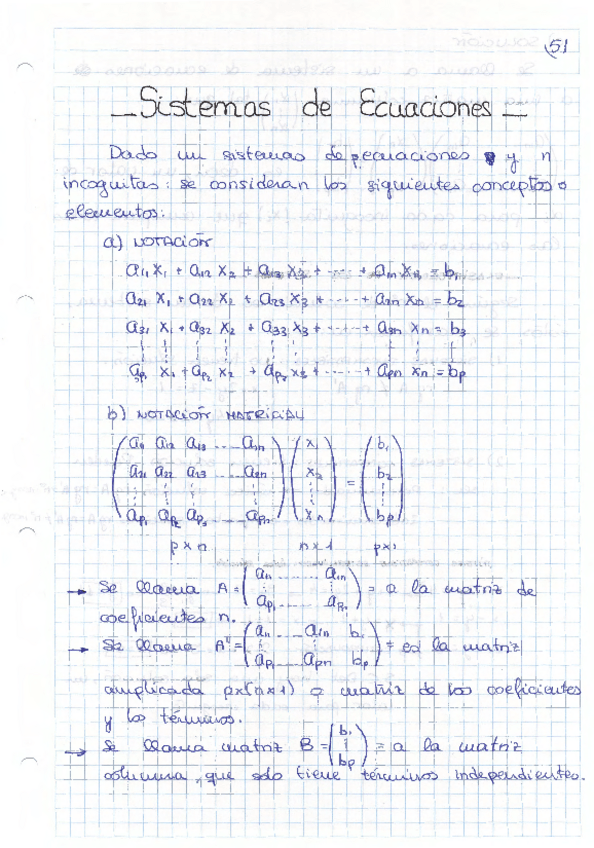 51
Sistemas de Ecuaciones
Dado un sistemas de p ecuaciones y n
incognitas: se consideran los siguientes conceptos o
elementos:
a) NOTACIÓN
a11 x1 + a12 x2 + a13 x3 + ---- + a1n xn = b1
a21 x1 + a22 x2 + a23 x3 + ---- + a2n xn = b2
a31 x1 + a32 x2 + a33 x3 + ---- + a3n xn = b3
ap1 x1 + ap2 x2 + ap3 x3 + ---- + apn xn = bp
b) NOTACIÓN MATRICIAL
( a11 a12 a13 ---- a1n ) ( x1 ) ( b1 )
( a21 a22 a23 ---- a2n ) ( x2 ) = ( b2 )
( ap1 ap2 ap3 ---- apn ) ( xn ) ( bp )
p x n n x 1 p x 1
→ Se llama A = ( a11 ---- a1n ap1 ---- apn ) = a la matriz de
coeficientes n.
→ Se llama A* = ( a11 ---- a1n b1 ap1 ---- apn bp ) = es la matriz
amplicada px(n x 1) o matriz de los coeficientes
y los términos.
→ Se llama matriz B = ( b1 bp ) = a la matriz
columna, que solo tiene términos independientes.